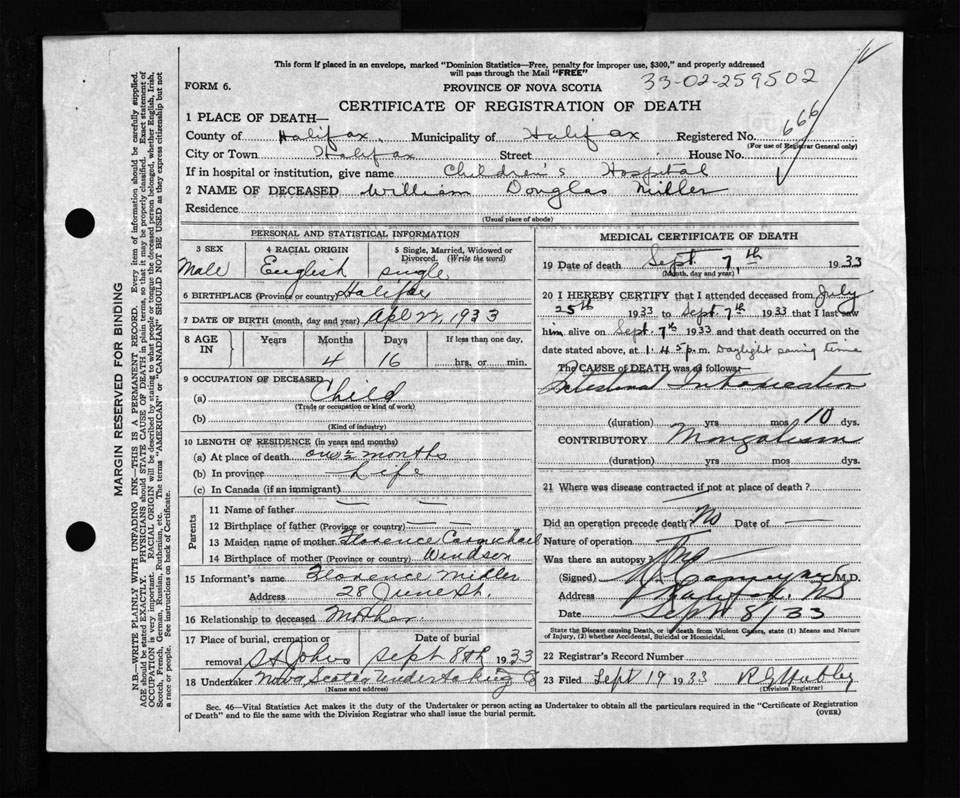 This form if placed in an envelope, marked "Dominion Statistics—Free, penalty for improper use, $300," and properly addressed
will pass through the Mail "FREE"
33-02-259502
FORM 6.
PROVINCE OF NOVA SCOTIA
CERTIFICATE OF REGISTRATION OF DEATH
666
1 PLACE OF DEATH—
County of Halifax. Municipality of Halifax Registered No.
(For use of Registrar General only)
City or Town Halifax Street House No.
If in hospital or institution, give name Children's Hospital
2 NAME OF DECEASED William Douglas Miller
Residence
(Usual place of abode)
PERSONAL AND STATISTICAL INFORMATION
3 SEX 4 RACIAL ORIGIN 5 Single, Married, Widowed or
Divorced. (Write the word)
Male English single
6 BIRTHPLACE (Province or country) Halifax
7 DATE OF BIRTH (month, day and year) Apl 22, 1933
8 AGE IN Years Months Days If less than one day,
4 16 hrs. or min.
9 OCCUPATION OF DECEASED
(a) Child
(Trade or occupation or kind of work)
(b)
(Kind of industry)
10 LENGTH OF RESIDENCE (in years and months)
(a) At place of death months
(b) In province Life
(c) In Canada (if an immigrant)
Parents
11 Name of father
12 Birthplace of father (Province or country)
13 Maiden name of mother Florence Carmichael
14 Birthplace of mother (Province or country) Windsor
15 Informant's name Florence Miller
Address 28 June St.
16 Relationship to deceased Mother.
17 Place of burial, cremation or Date of burial
removal St Johns Sept 8th 1933
18 Undertaker Nova Scotia Undertaking Co
(Name and address)
MEDICAL CERTIFICATE OF DEATH
19 Date of death Sept. 7th 1933
(Month, day and year)
20 I HEREBY CERTIFY that I attended deceased from July
25th 1933 to Sept. 7th 1933 that I last saw
him alive on Sept. 7th 1933 and that death occurred on
date stated above, at 1.45 p.m. Daylight saving time
The CAUSE of DEATH was as follows—
Intestinal Intoxication
(duration) yrs mos 10 dys.
CONTRIBUTORY Mongolism
(duration) yrs mos dys.
21 Where was disease contracted if not at place of death?
Did an operation precede death? No Date of —
Nature of operation —
Was there an autopsy? No
(Signed) M.D.
Address Halifax, NS
Date Sept 8/33
State the Disease causing Death, or in death from Violent Causes, state (1) Means and Nature
of Injury, (2) whether Accidental, Suicidal or Homicidal.
22 Registrar's Record Number
23 Filed Sept 19 1933 R G Hubley
(Division Registrar)
Sec. 46—Vital Statistics Act makes it the duty of the Undertaker or person acting as Undertaker to obtain all the particulars required in the "Certificate of Registration
of Death" and to file the same with the Division Registrar who shall issue the burial permit.
(OVER)
MARGIN RESERVED FOR BINDING
N.B.—WRITE PLAINLY WITH UNFADING INK—THIS IS A PERMANENT RECORD. Every item of information should be carefully supplied.
AGE should be stated EXACTLY. PHYSICIANS should STATE CAUSE OF DEATH in plain terms, so that it may be properly classified. Exact statement of
OCCUPATION is very important. RACIAL ORIGIN will be described by stating to what people or tongue the deceased person belonged, whether English, Irish,
Scotch, French, German, Russian, Ruthenian, etc. The terms "AMERICAN" or "CANADIAN" SHOULD NOT BE USED as they express citizenship but not
a race or people. See instructions on back of Certificate.